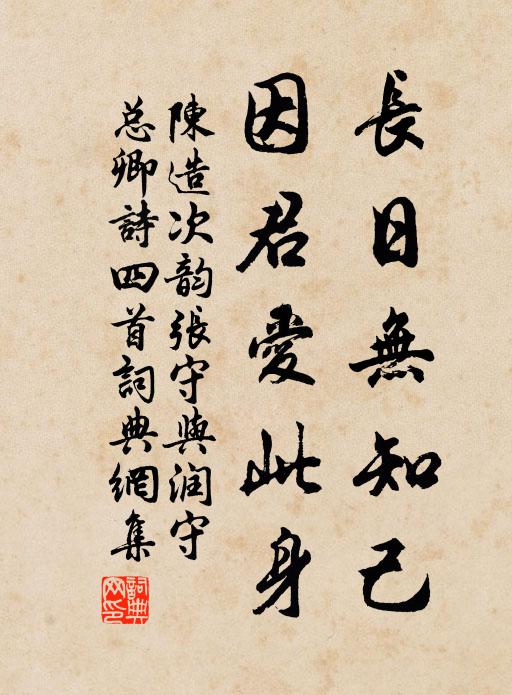 長日無知己
因君愛此身
陳造次韵張守與润守
总卿詩四首詞典網集
詞典
网印